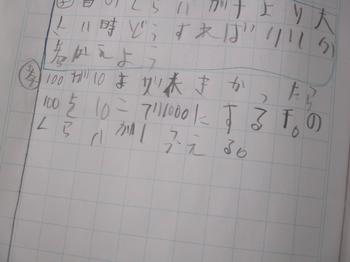 くらいが十より大
きい時どうすればいいか
考がえよう
考 100が10まがい大きかったら
100を10こで1000にする千の
くらいが1ふえる。